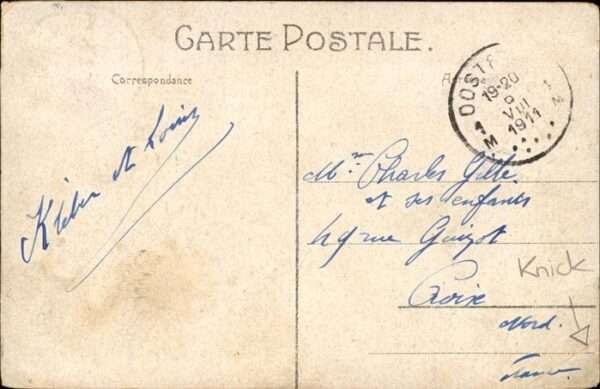 CARTE POSTALE.
Correspondance
OOST
19-20
VIII
1911
1 M
1 M
Kléber et Louis
Mr Charles Gille
et ses enfants
49 rue Guizot
Croix
Nord.
France
Knick